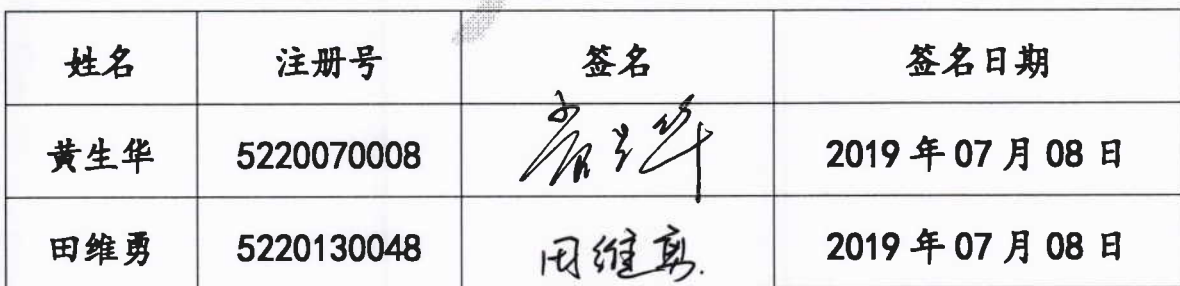 姓名 注册号 签名 签名日期
黄生华 5220070008 黄生华 2019年07月08日
田维勇 5220130048 田维勇 2019年07月08日